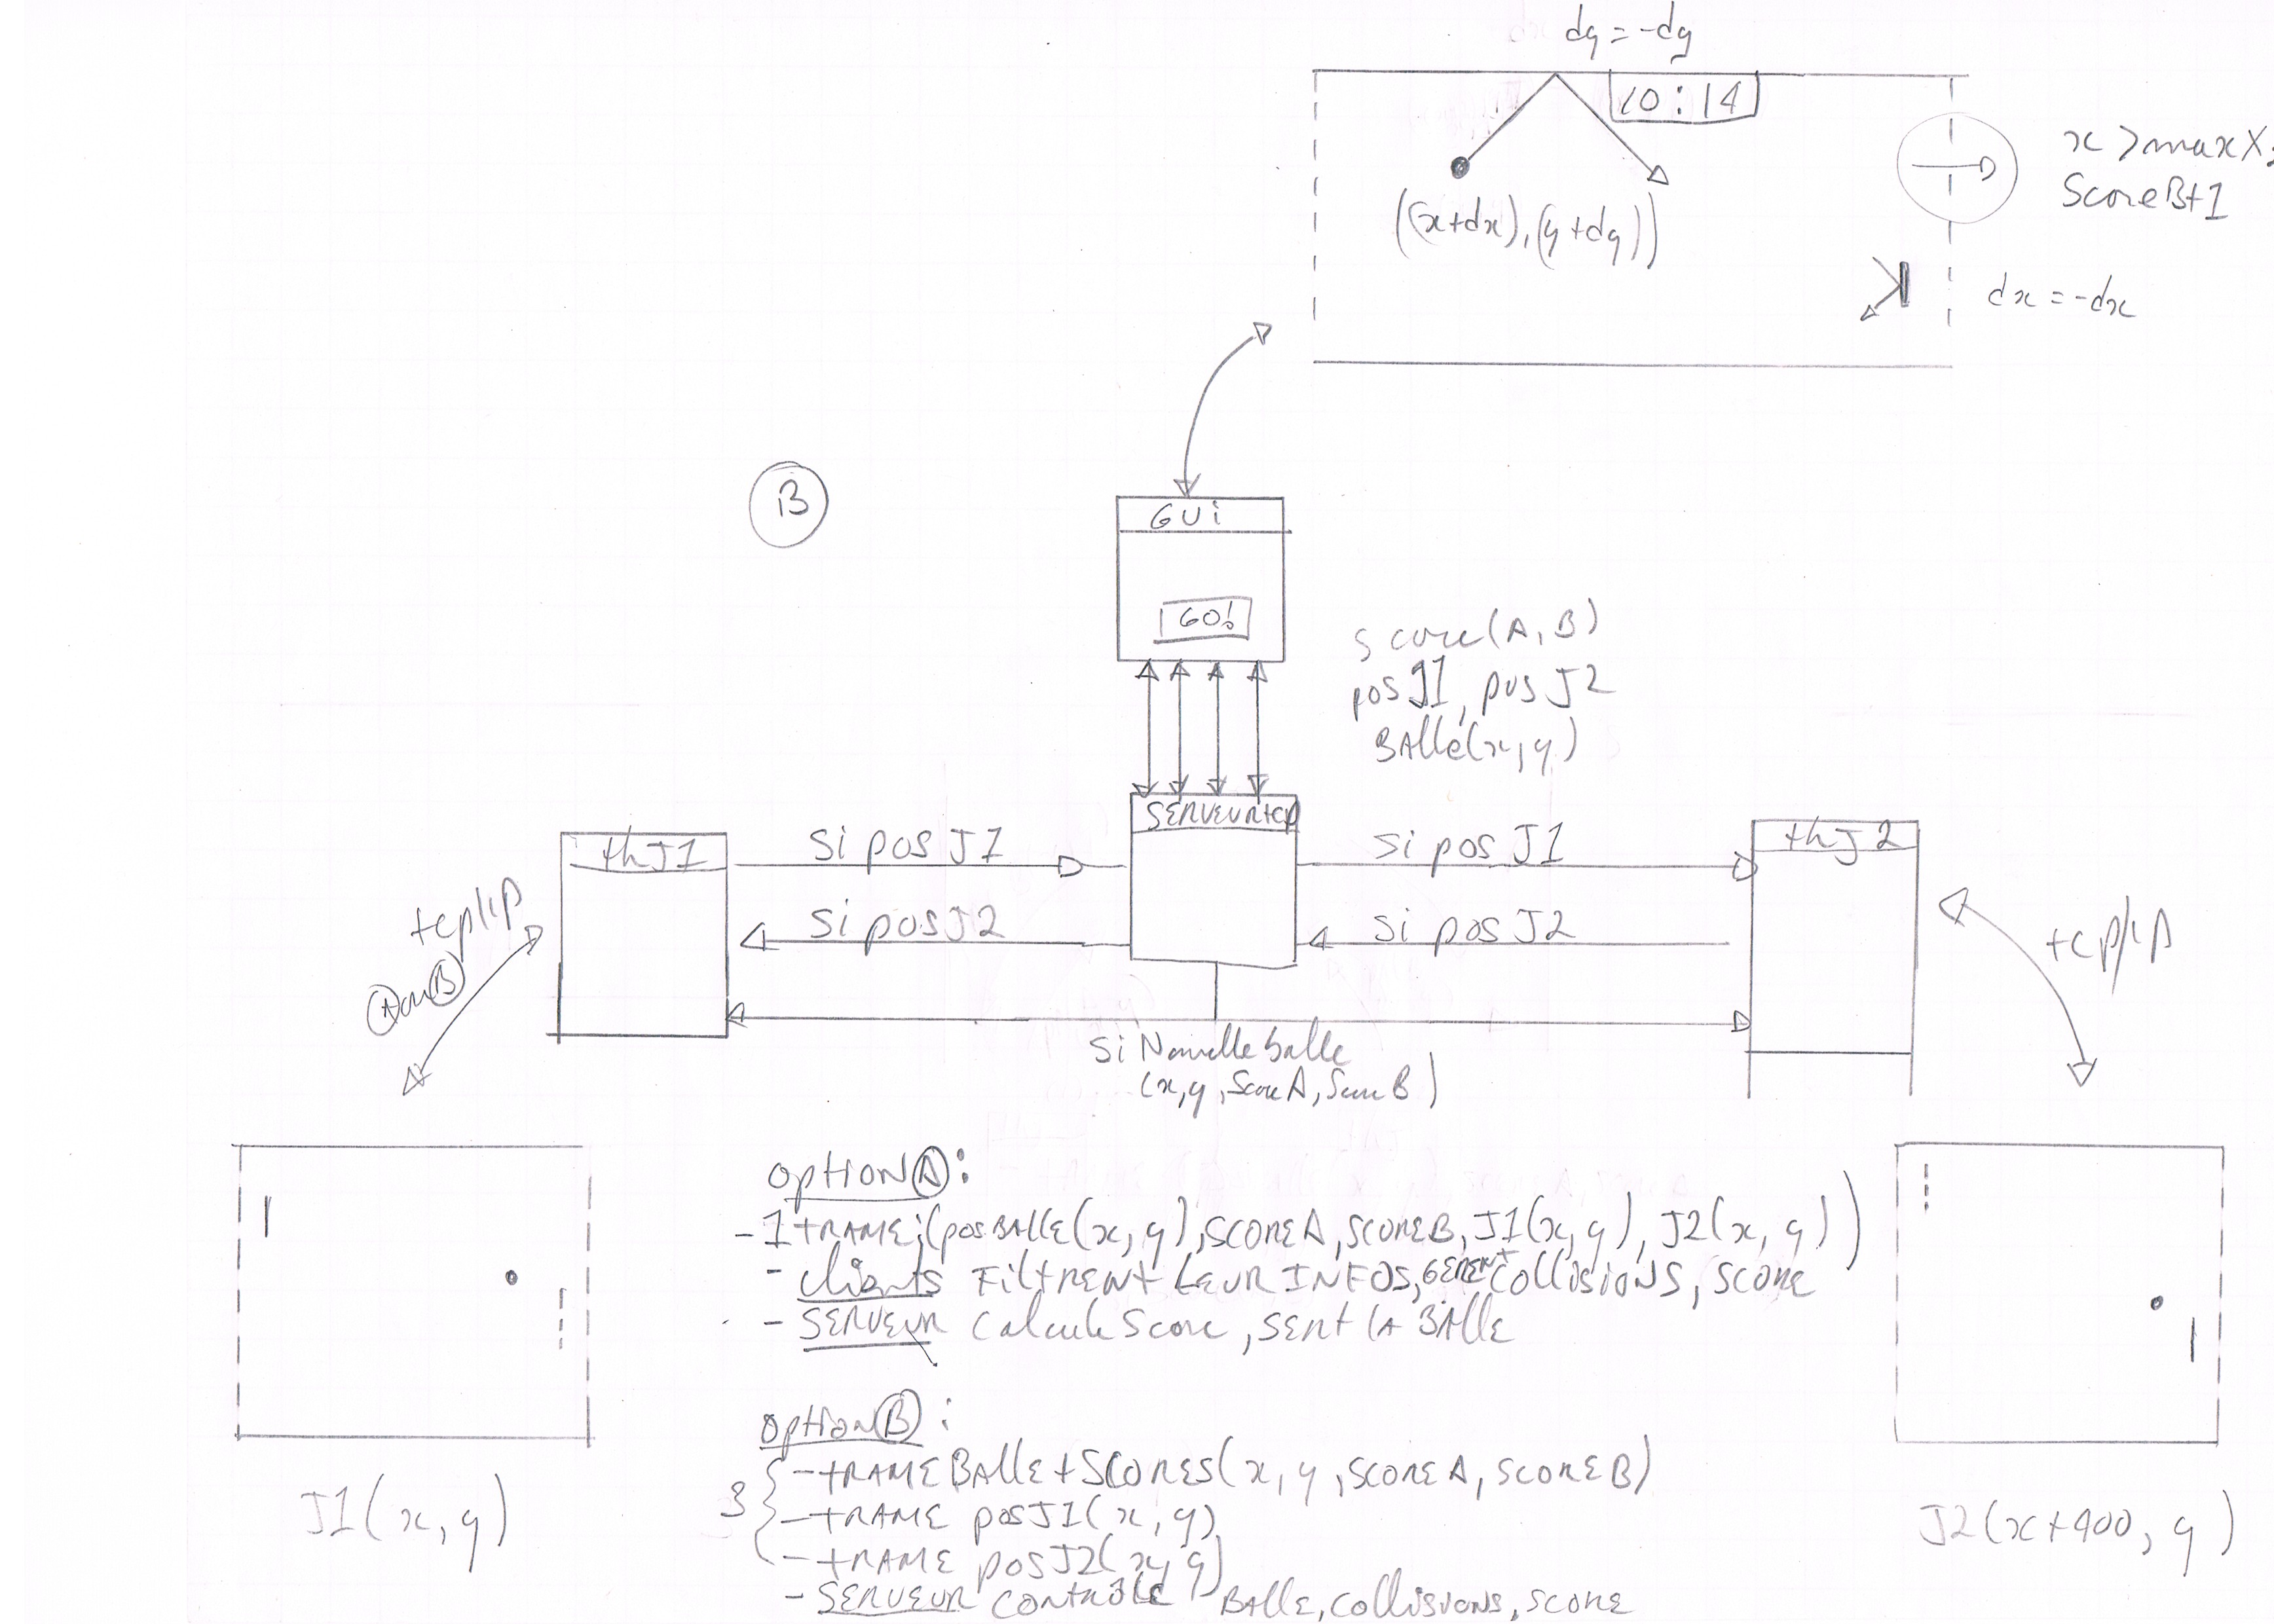 dy = -dy
10 : 14
x > maxX;
ScoreB+1
((x+dx),(y+dy))
dx = -dx
B
GUi
GO!
score(A, B)
posJ1, posJ2
BAlle(x, y)
SERVEURtcp
thJ1
Si posJ1
Si posJ1
thJ2
tcp/ip
Si posJ2
Si posJ2
tcp/ip
A ou B
Si Nouvelle balle
(x, y, ScoreA, ScoreB)
option A :
- 1 tRAME : (posBAlle(x, y), SCOREA, SCOREB, J1(x, y), J2(x, y))
- clients FiltRENt LEUR INFOS, GERENt COllisiONS, SCORE
- SERVEUR CalculE Score, SENt lA BAllE
option B :
3 { - tRAME BAllE + SCORES(x, y, SCOREA, SCOREB)
- tRAME posJ1(x, y)
- tRAME posJ2(x, y)
- SERVEUR CONtRôlE BAllE, COllisiONS, SCORE
J1(x, y)
J2(x+400, y)